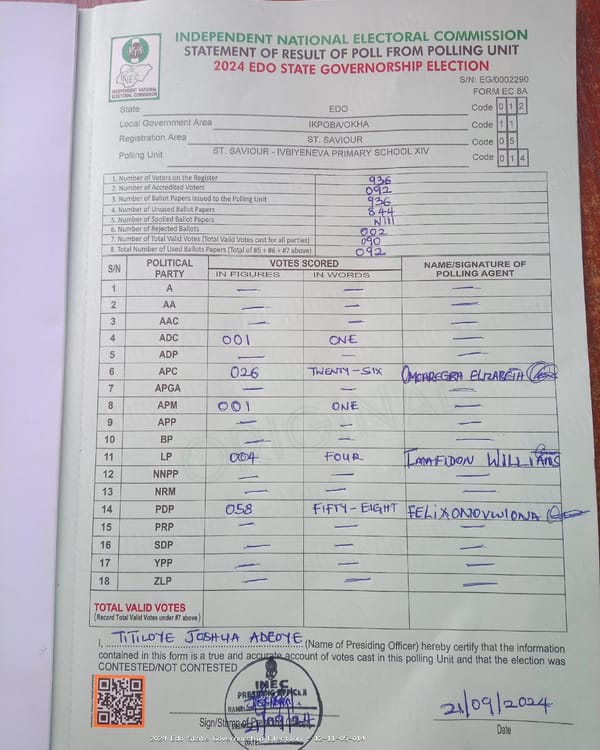 INDEPENDENT NATIONAL ELECTORAL COMMISSION
STATEMENT OF RESULT OF POLL FROM POLLING UNIT
2024 EDO STATE GOVERNORSHIP ELECTION
INEC
INDEPENDENT NATIONAL ELECTORAL COMMISSION
S/N: EG/0002290
FORM EC 8A
State EDO Code 0 1 2
Local Government Area IKPOBA/OKHA Code 1 1
Registration Area ST. SAVIOUR Code 0 5
Polling Unit ST. SAVIOUR - IVBIYENEVA PRIMARY SCHOOL XIV Code 0 1 4
1. Number of Voters on the Register 936
2. Number of Accredited Voters 092
3. Number of Ballot Papers issued to the Polling Unit 936
4. Number of Unused Ballot Papers 844
5. Number of Spoiled Ballot Papers Nill
6. Number of Rejected Ballots 002
7. Number of Total Valid Votes (Total Valid Votes cast for all parties) 090
8. Total Number of Used Ballots Papers (Total of #5 + #6 + #7 above) 092
S/N POLITICAL PARTY VOTES SCORED NAME/SIGNATURE OF POLLING AGENT
IN FIGURES IN WORDS
1 A — — —
2 AA — — —
3 AAC — — —
4 ADC 001 ONE —
5 ADP — — —
6 APC 026 TWENTY-SIX OMOAREGBA ELIZABETH
7 APGA — — —
8 APM 001 ONE —
9 APP — — —
10 BP — — —
11 LP 004 FOUR IMAFIDON WILLIAMS
12 NNPP — — —
13 NRM — — —
14 PDP 058 FIFTY-EIGHT FELIX ONOVWIONA
15 PRP — — —
16 SDP — — —
17 YPP — — —
18 ZLP — — —
TOTAL VALID VOTES
(Record Total Valid Votes under #7 above)
I, TITILOYE JOSHUA ADEOYE (Name of Presiding Officer) hereby certify that the information
contained in this form is a true and accurate account of votes cast in this polling Unit and that the election was
CONTESTED/NOT CONTESTED
INEC
PRESIDING OFFICER
NAME:
21/09/24
DATE:
Sign/Stamp of
21/09/2024
Date
2024 Edo State Governorship Election - 12-11-05-014
ORIGINAL